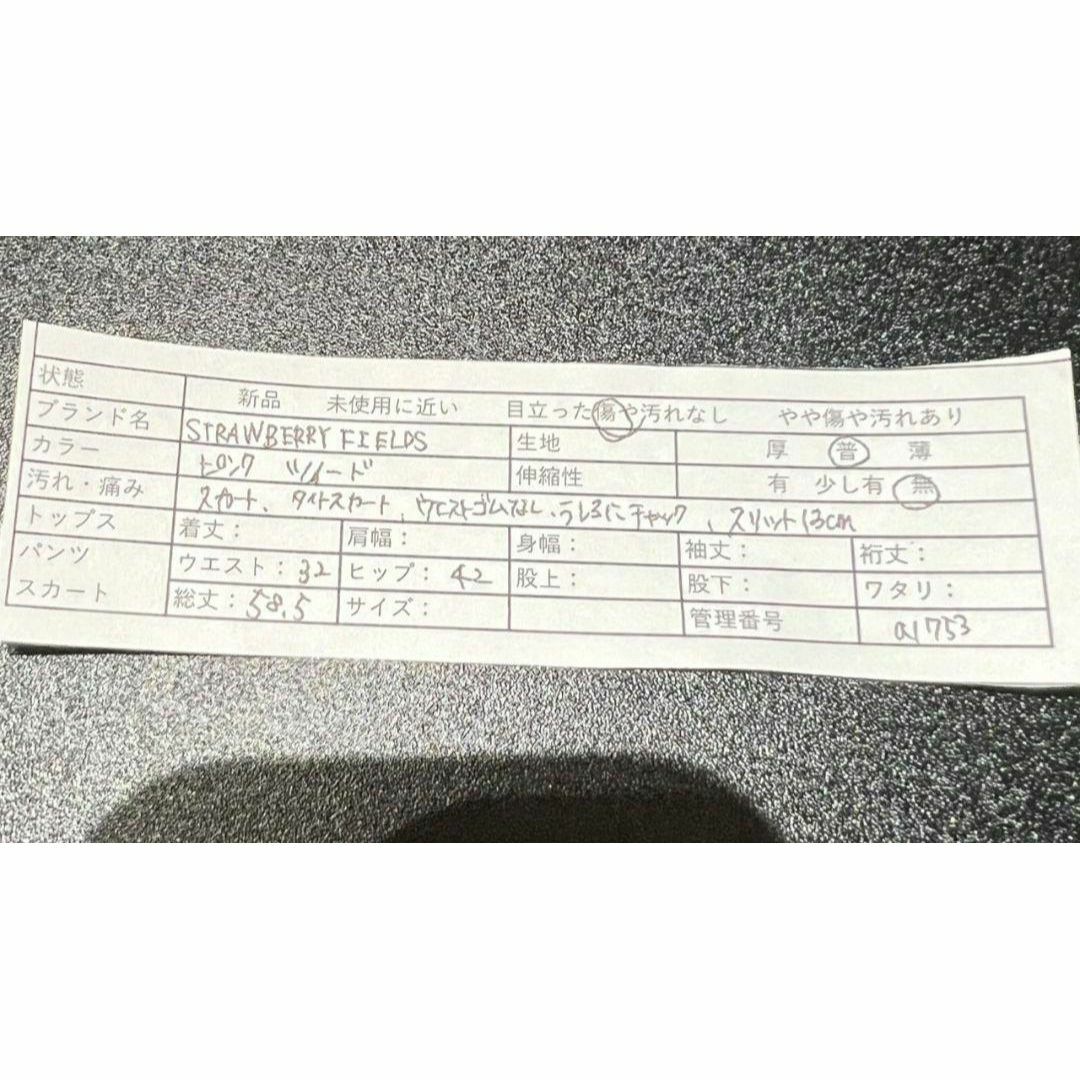 状態 新品 未使用に近い 目立った傷や汚れなし やや傷や汚れあり
ブランド名 STRAWBERRY FIELDS 生地 厚 普 薄
カラー ピンク ツイード 伸縮性 有 少し有 無
汚れ・痛み スカート、タイトスカート、ウエストゴムなし、うしろにチャック、スリット13cm
トップス 着丈: 肩幅: 身幅: 袖丈: 裄丈:
パンツ ウエスト:32 ヒップ:42 股上: 股下: ワタリ:
スカート 総丈:58.5 サイズ: 管理番号 a1753